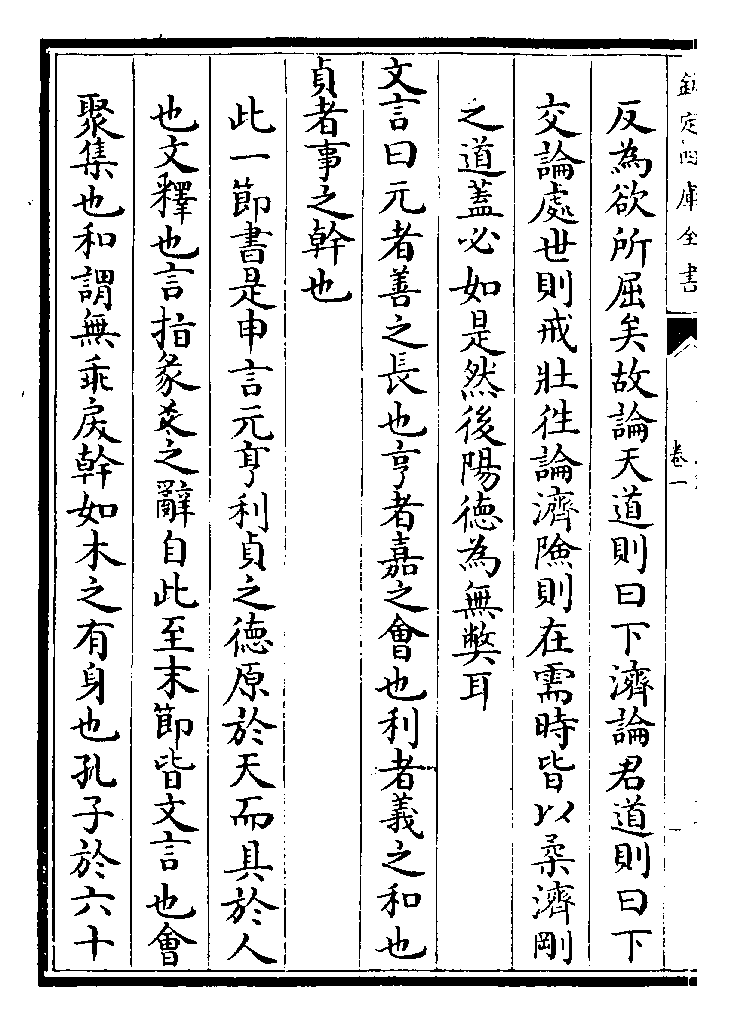 欽定四庫全書
卷一
反為欲所屈矣故論天道則曰下濟論君道則曰下
交論處世則戒壯徃論濟險則在需時皆以柔濟剛
之道蓋必如是然後陽徳為無弊耳
文言曰元者善之長也亨者嘉之會也利者義之和也
貞者事之幹也
此一節書是申言元亨利貞之徳原於天而具於人
也文釋也言指彖爻之辭自此至末節皆文言也會
聚集也和謂無乖戾幹如木之有身也孔子於六十